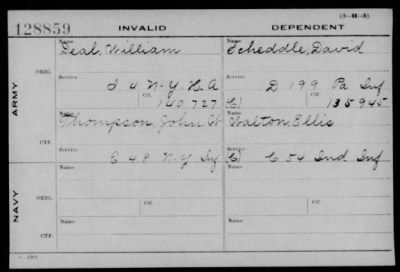 (3-H-3)
128859 INVALID DEPENDENT
Name Name
Deal, William Scheddle, David
ARMY
ORIG.
Service Service
I 4 N-Y. H. A D 199 Pa Inf
Ctf. Ctf.
140727 C) 135945
Name Name
Thompson, John W Walton, Ellis
CTF.
Service Service
E 48 N.Y Inf C) C 54 Ind Inf
NAVY
Name Name
ORIG.
Ctf. Ctf.
Name Name
CTF.